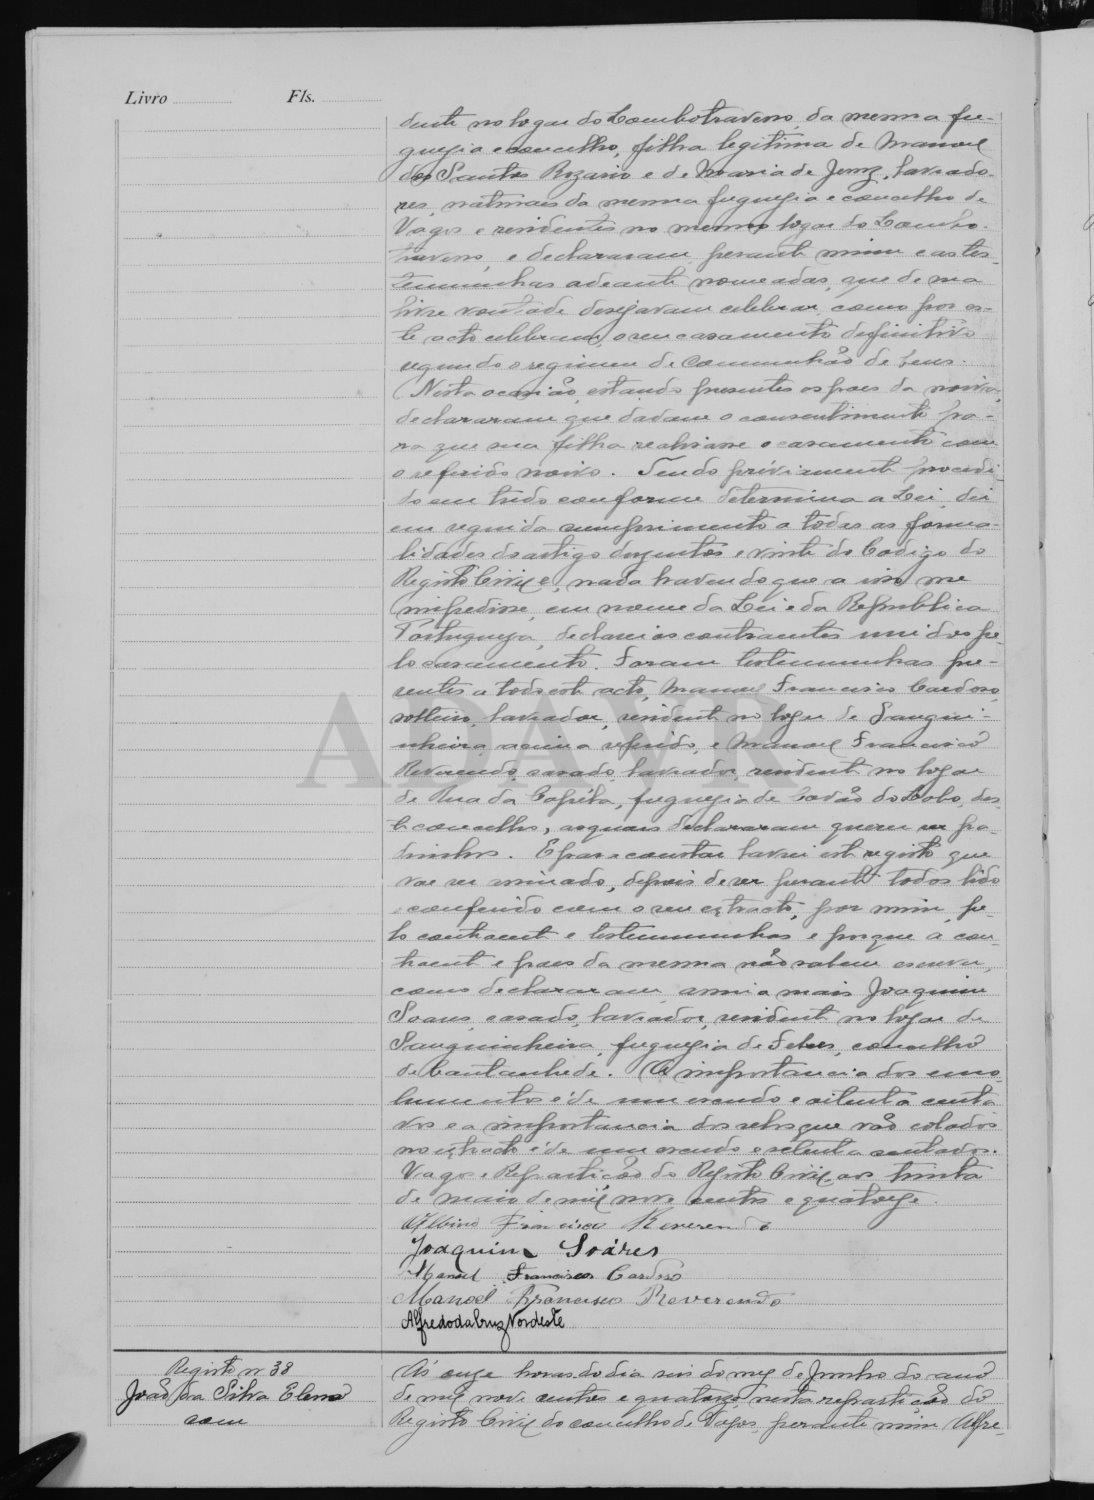 Livro Fls.
dente no logar do Lombotraverso, da mesma fre-
guesia e concelho, filha legitima de Manuel
dos Santos Rozario e de Maria de Jesuz, lavrado-
res, naturaes da mesma freguesia e concelho de
Vagos e residentes no mesmo logar do Lombo-
traverso, e declararam perante mim e as tes-
temunhas adeante nomeadas, que de sua
livre vontade desejavam celebrar, como por es-
te acto celebram, o seu casamento definitivo
segundo o regimen de communhão de bens.
Nesta ocasião, estando presentes os paes da noiva,
declararam que davam o consentimento pa-
ra que sua filha realisasse o casamento com
o referido noivo. Tendo préviamente procedi-
do em tudo conforme determina a Lei, dei
em seguida cumprimento a todas as forma-
lidades do artigo duzentos e vinte do Codigo do
Registo Civil e, nada havendo que a isso me
impedisse, em nome da Lei e da Republica
Portugueza, declarei os contraentes unidos pe-
lo casamento. Foram testemunhas pre-
sentes a todo este acto, Manuel Francisco Cardoso,
solteiro, lavrador, residente no logar de Sangui-
nheira, acima referido, e Manuel Francisco
Reverendo, casado, lavrador, residente no logar
de Rua da Capéla, freguesia de Covão do Lobo, des-
te concelho, os quaes declararam querer ser pa-
drinhos. E para constar lavrei este registo que
vae ser assinado, depois de ser perante todos lido
e conferido com o seu extracto, por mim, pe-
lo contraente e testemunhas e porque a con-
traente e paes da mesma não sabem escrever,
como declararam, assina mais Joaquim
Soares, casado, lavrador, residente no logar de
Sanguinheira, freguesia de Febres, concelho
de Cantanhede. A importancia dos emo-
lumentos é de um escudo e oitenta centa
vos e a importancia dos selos que vão colados
no extracto é de um escudo e setenta centavos.
Vagos e Repartição do Registo Civil, aos trinta
de maio de mil nove centos e quatorze.
Albino Francisco Reverendo
Joaquim Soáres
Manuel Francisco Cardoso
Manoel Francisco Reverendo
Alfredo da Cruz Nordeste
Registo nº 38
João da Silva Eleno
com
Ás onze horas do dia seis do mez de Junho do ano
de mil nove centos e quatorze, nesta repartição do
Registo Civil do concelho de Vagos, perante mim Alfre-
ADAVR